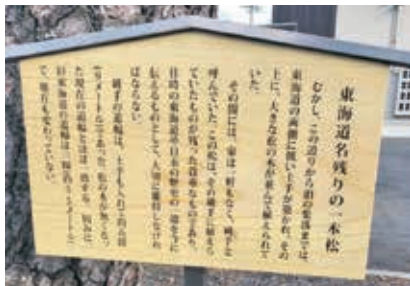 東海道名残りの一本松
むかし、この辺りから沼の窪潟までは、
東海道の両側に低い土手が築かれ、その
上に、大きな松の木が並んで植えられて
いた。
その間には、家は一軒もなく、縄手と
呼んでいた。この松は、その縄手に植えら
れていたものが残った貴重なものであり、
往時の東海道や日本の歴史の一端を今に
伝えるものとして、大切に保存しなけれ
ばならない。
縄手の道幅は、土手も入れて約五間
(九メートル)であった。松の木が無くなっ
た現在の道幅とほぼ一致する。因みに、
旧東海道の道幅は、四間(約七メートル)
で、現在も変わっていない。